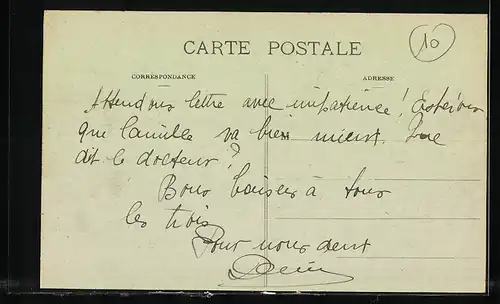 10
CARTE POSTALE
CORRESPONDANCE
ADRESSE
Attend vos lettre avec impatience !
que Camille va bien mieux. Que
dit le docteur ?
M
Bons baisers à tous
les trois
Pour nous deux